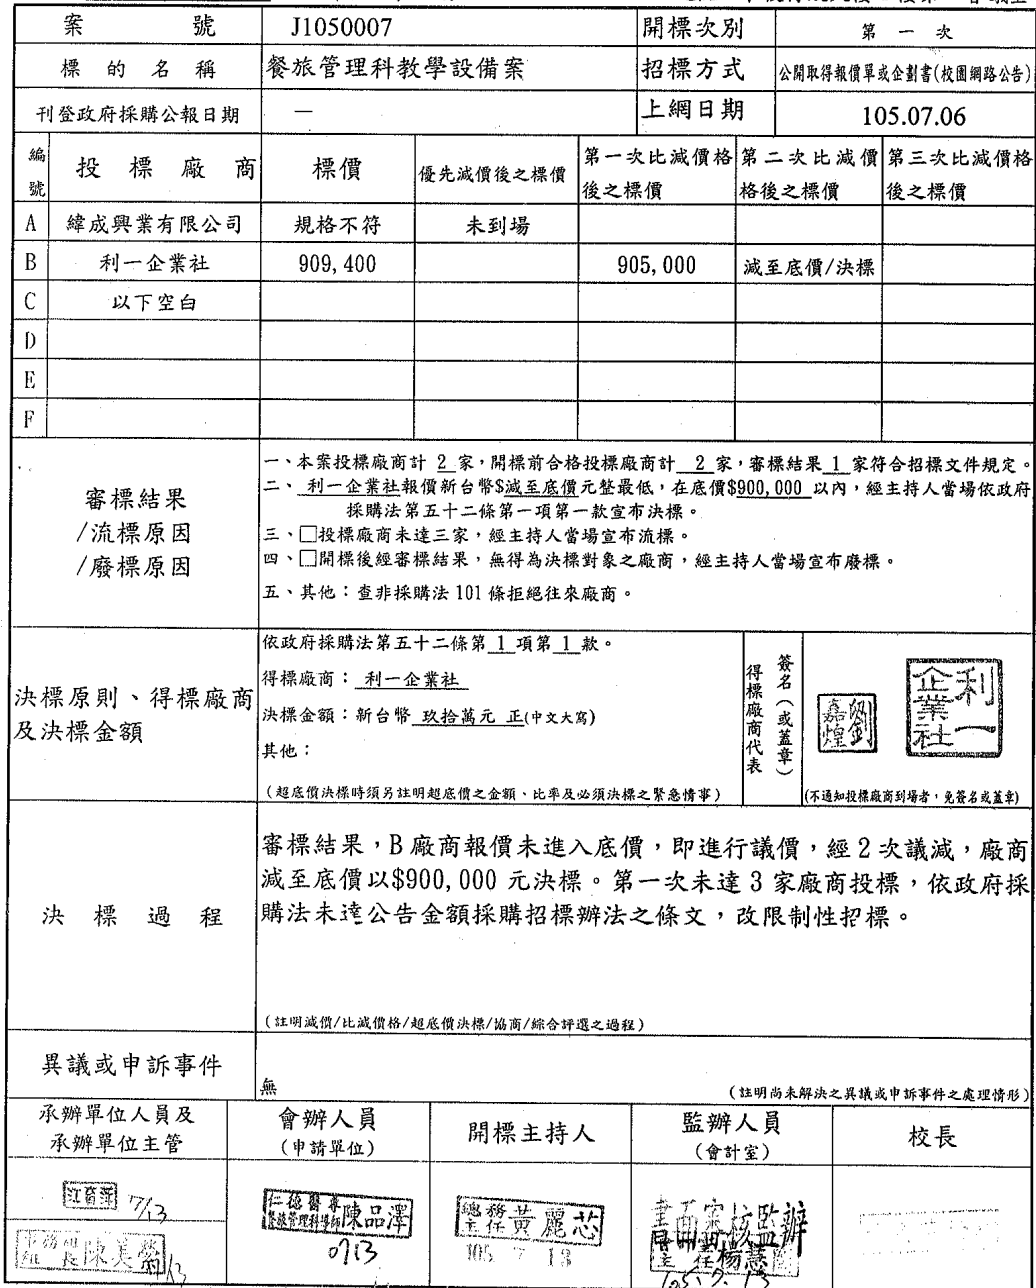 案號 J1050007 開標次別 第一次
標的名稱 餐旅管理科教學設備案 招標方式 公開取得報價單或企劃書(校園網路公告)
刊登政府採購公報日期 — 上網日期 105.07.06
編號 投標廠商 標價 優先減價後之標價 第一次比減價格後之標價 第二次比減價格後之標價 第三次比減價格後之標價
A 緯成興業有限公司 規格不符 未到場
B 利一企業社 909,400 905,000 減至底價/決標
C 以下空白
D
E
F
審標結果
/流標原因
/廢標原因
一、本案投標廠商計 2 家,開標前合格投標廠商計 2 家,審標結果 1 家符合招標文件規定。
二、利一企業社報價新台幣$減至底價元整最低,在底價$900,000 以內,經主持人當場依政府
採購法第五十二條第一項第一款宣布決標。
三、□投標廠商未達三家,經主持人當場宣布流標。
四、□開標後經審標結果,無得為決標對象之廠商,經主持人當場宣布廢標。
五、其他:查非採購法 101 條拒絕往來廠商。
決標原則、得標廠商
及決標金額
依政府採購法第五十二條第 1 項第 1 款。
得標廠商: 利一企業社
決標金額:新台幣 玖拾萬元 正(中文大寫)
其他:
(超底價決標時須另註明超底價之金額、比率及必須決標之緊急情事)
得標廠商代表
簽名(或蓋章)
劉嘉煌
利一企業社
(不通知投標廠商到場者,免簽名或蓋章)
決標過程
審標結果,B 廠商報價未進入底價,即進行議價,經 2 次議減,廠商
減至底價以$900,000 元決標。第一次未達 3 家廠商投標,依政府採
購法未達公告金額採購招標辦法之條文,改限制性招標。
(註明減價/比減價格/超底價決標/協商/綜合評選之過程)
異議或申訴事件
無
(註明尚未解決之異議或申訴事件之處理情形)
承辦單位人員及
承辦單位主管
會辦人員
(申請單位)
開標主持人
監辦人員
(會計室)
校長
7/13
仁德醫專
餐旅管理科導師 陳品澤
0713
總務主任 黃麗芯
105 7 13
書面審核監辦
105.7.13